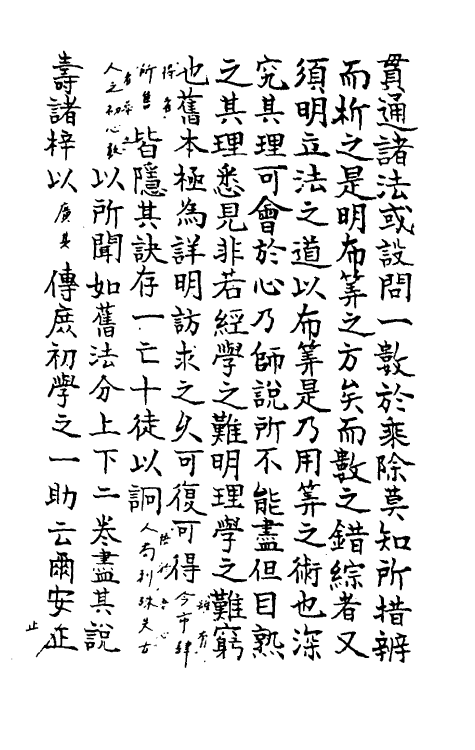 貫通諸法或設問一數於乘除莫知所措辨
而析之是明布筭之方矣而數之錯綜者又
須明立法之道以布筭是乃用筭之術也深
究其理可會於心乃師說所不能盡但目熟
之其理悉見非若經學之難明理學之難窮
也舊本極為詳明訪求之久可復可得今市肆雖有
所售皆隱其訣存一亡十徒以詷人為利殊失古
人之初心敬以所聞如舊法分上下二卷盡其說
壽諸梓以廣其傳庶初學之一助云爾安止
止